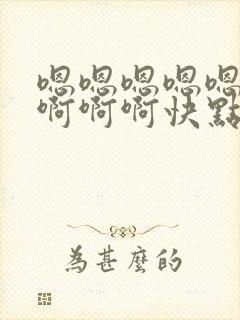 嗯嗯嗯嗯嗯
啊啊啊快點
為甚麼的